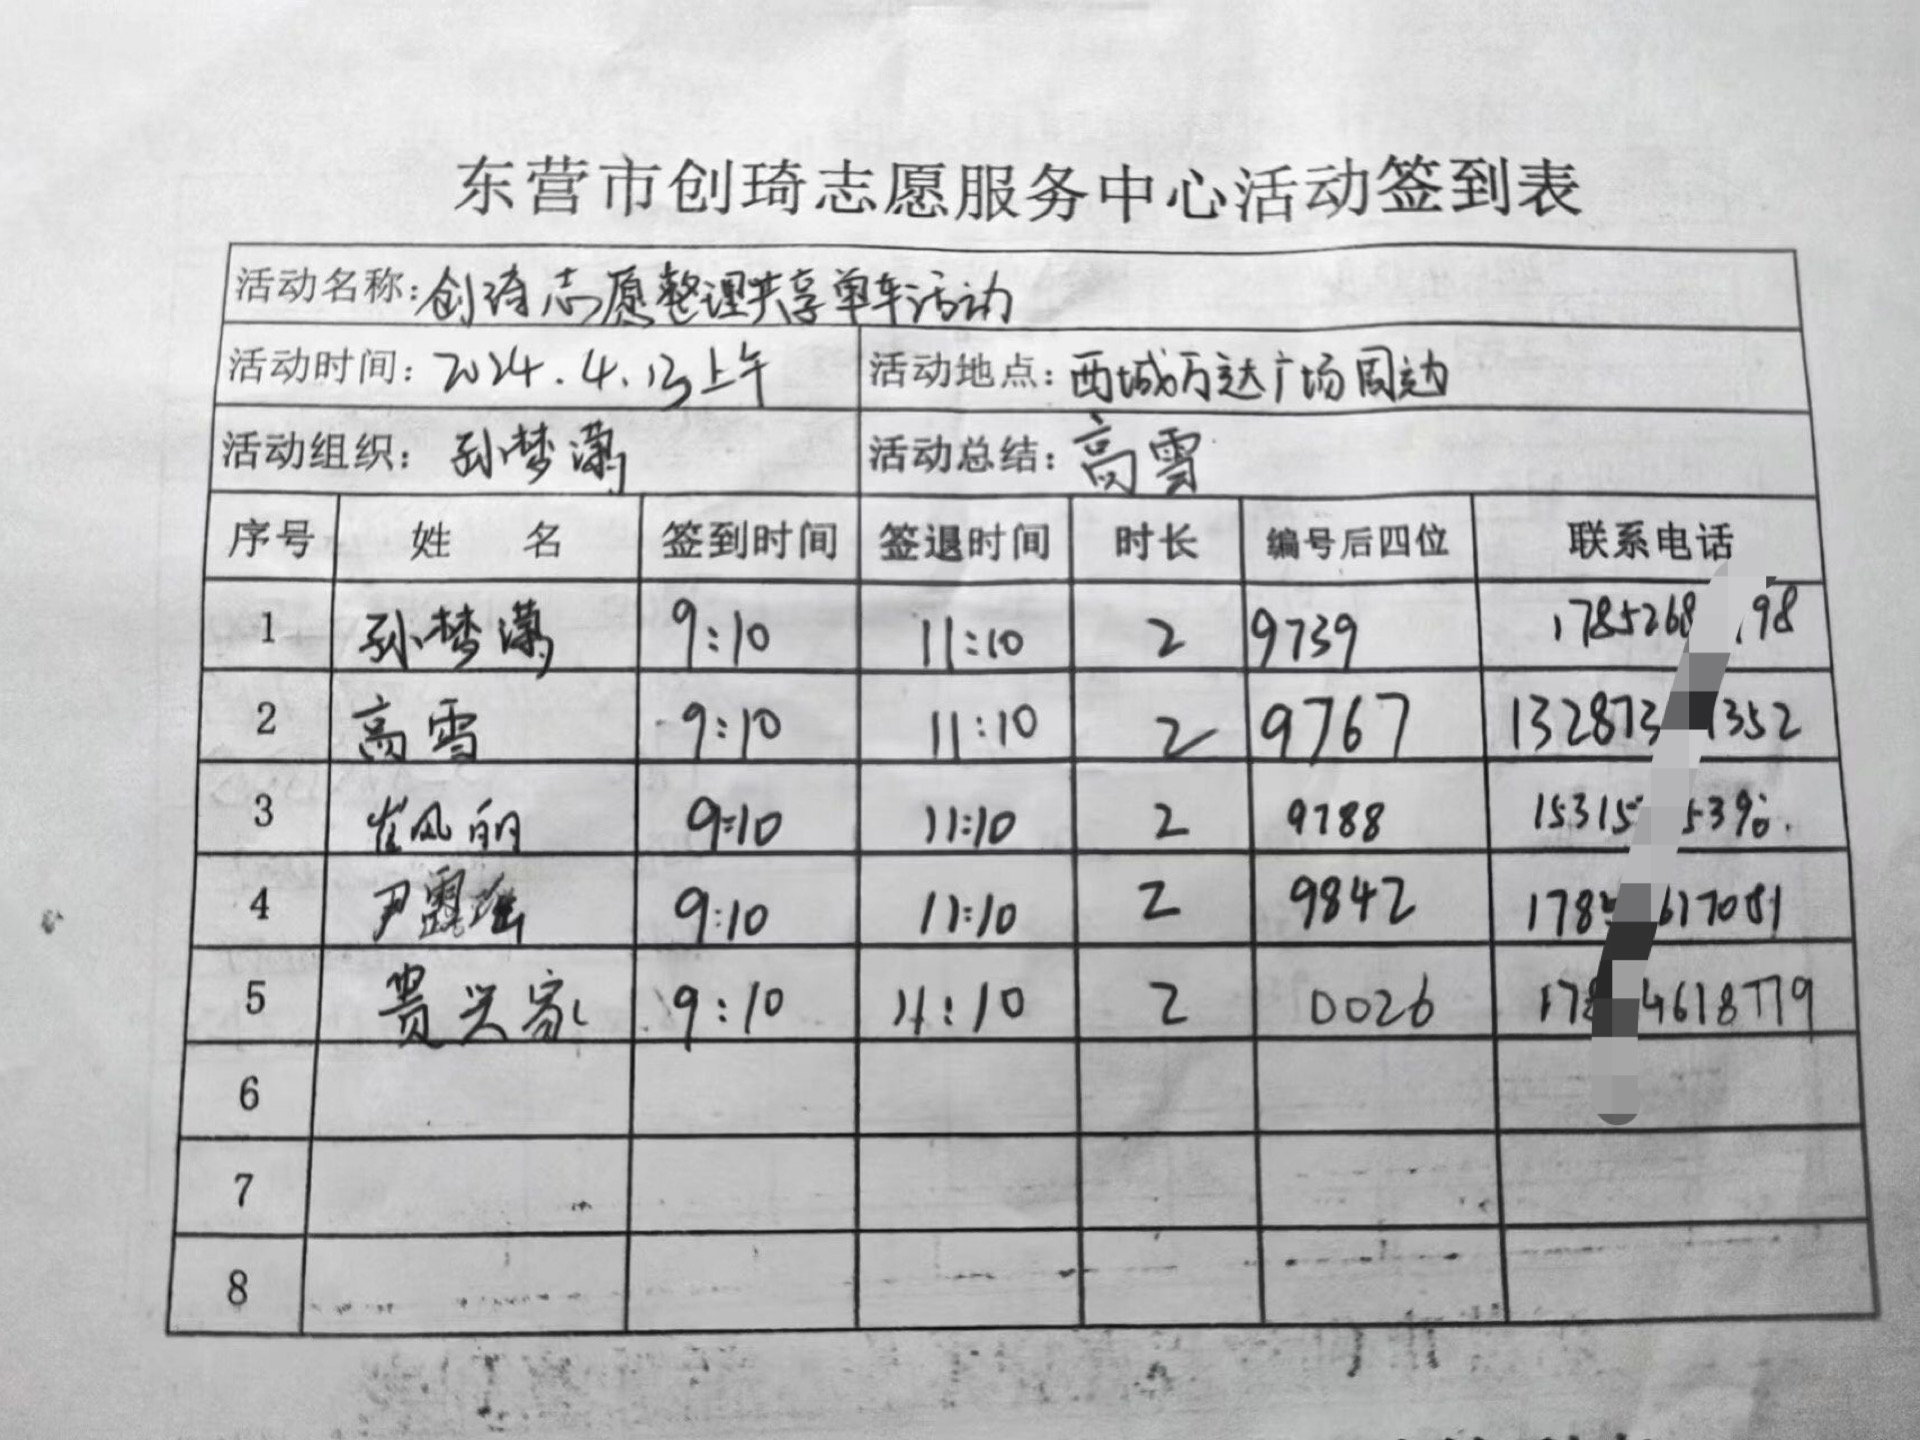 东营市创琦志愿服务中心活动签到表
活动名称：创琦志愿整理共享单车活动
活动时间：2024.4.13上午 活动地点：西城万达广场周边
活动组织：孙梦潇 活动总结：高雪
序号 姓 名 签到时间 签退时间 时长 编号后四位 联系电话
1 孙梦潇 9:10 11:10 2 9739 1785268 98
2 高雪 9:10 11:10 2 9767 132873 1352
3 崔凤丽 9:10 11:10 2 9788 15315 539
4 尹露 9:10 11:10 2 9842 178 617081
5 兴家 9:10 11:10 2 0026 178 4618779
6
7
8